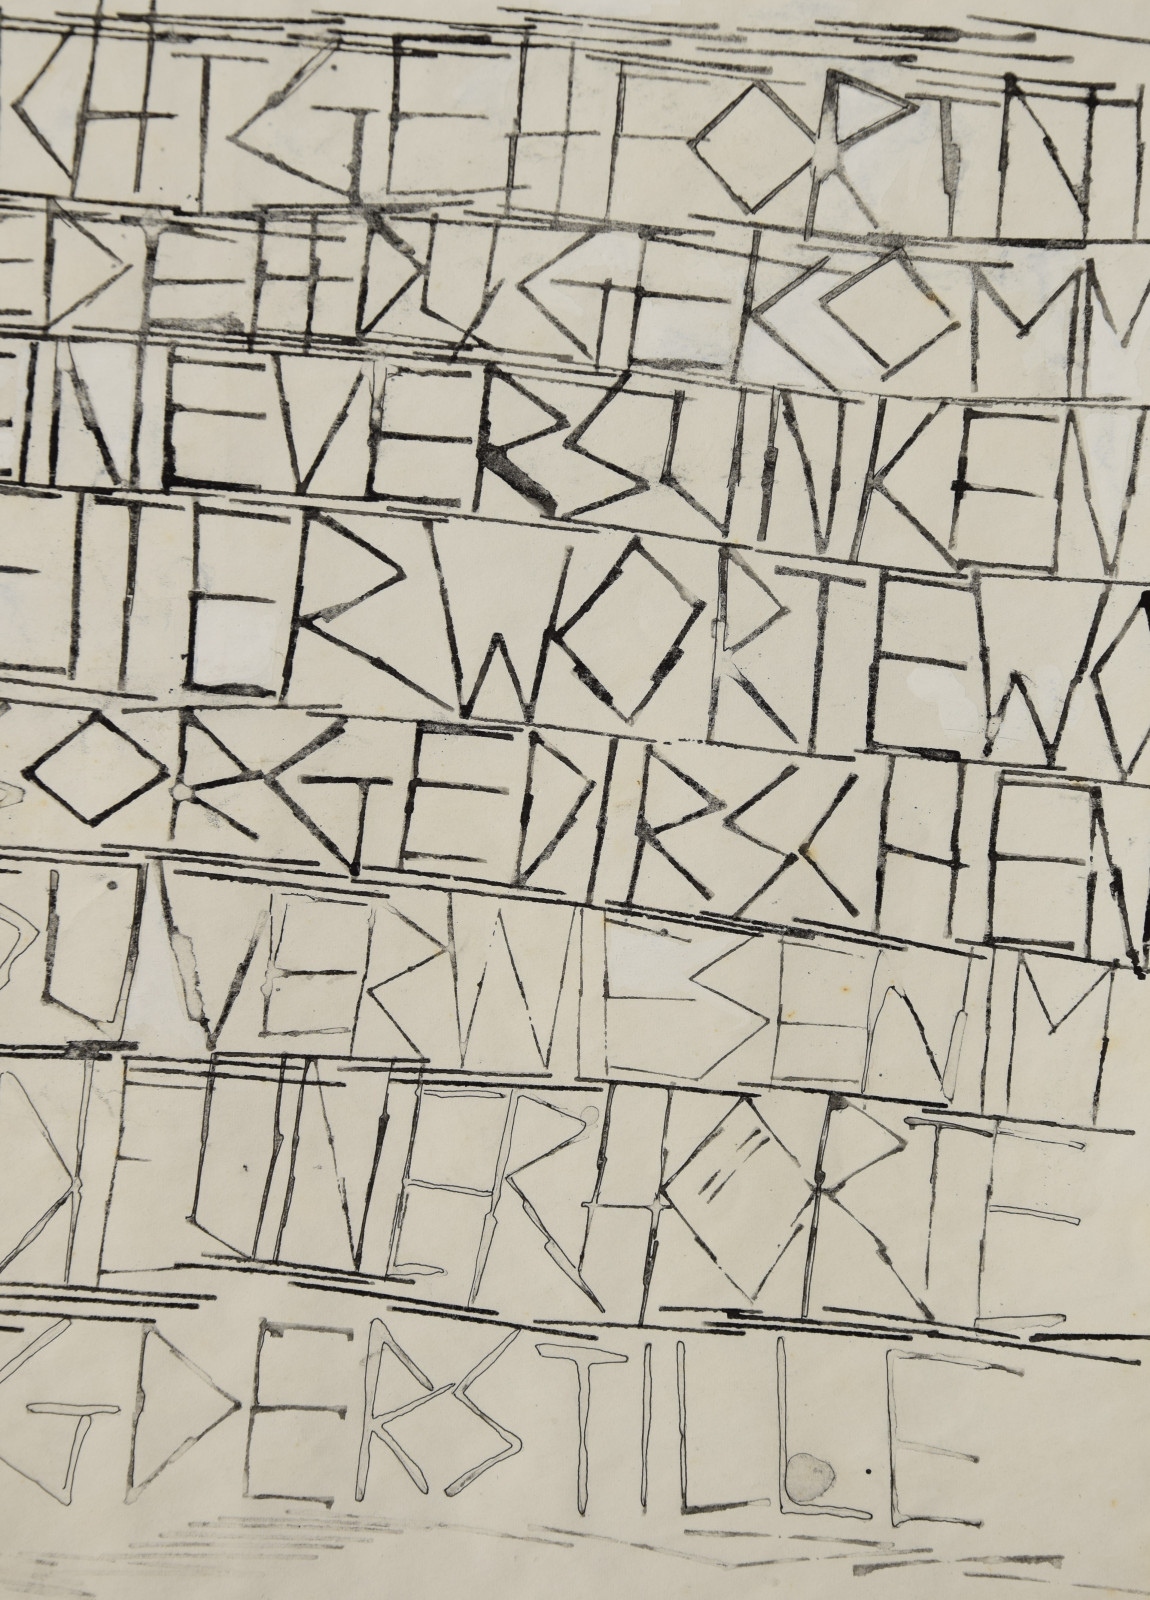 CHT GEH FORT NI
EDEH DU GEKOMM
EINE VERSUNKEN
EITER WORTE WO
ORGE DIR SCHEN
DU VERWIESEN IM
E UNERHÖRTE
G DER STILLE